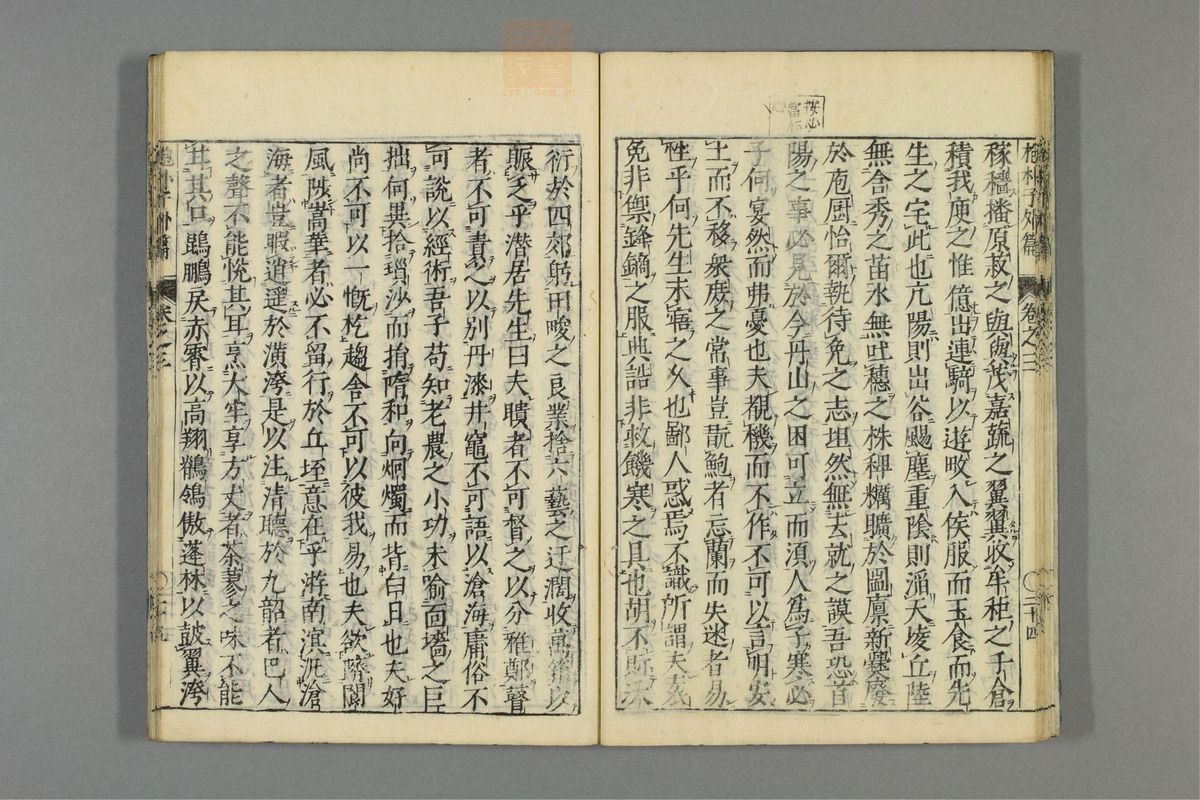 抱朴子外篇 卷之三 二十四
稼穡播原菽之與與茂嘉蔬之翼翼收牟秬之千倉
積我庾之惟億出連騎以遊畋入侯服而玉食而先
生之宅此也亢陽則出谷颺塵重陰則滔天凌丘陸
無含秀之苗水無吐穗之株稗糲曠於圖廩新爨廢
於庖厨怡爾執待免之志坦然無去就之謨吾恐首
陽之事必見於今丹山之困可立而湏人爲子寒必
子何宴然而弗憂也夫覩機而不作不可以言明安
土而不移衆庶之常事豈翫鮑者忘蘭而失迷者易
性乎何先生未寤之久也鄙人惑焉不識所謂夫
免非禦鋒鏑之服典誥非救饑寒之具也胡不
按必當作心
衍於四郊躬田畯之良業捨六藝之迂濶收萬箱以
賑乏乎潜居先生曰夫聵者不可督之以分雅鄭瞽
者不可責之以别丹漆井竈不可語以滄海庸俗不
可說以經術吾子苟知老農之小功未喻面墻之巨
拙何異拾瑣沙而捐隋和向炯燭而背白日也夫好
尚不可以一慨杚趨舍不可以彼我易也夫欲隮閬
風陟嵩華者必不留行於丘垤意在乎游南溟汎滄
海者豈暇逍遥於潢洿是以注清聽於九韶者巴人
之聲不能悅其耳烹大牢享方丈者荼蓼之味不能
甘其口鵾鵬戾赤霄以高翔鶺鴒傲蓬林以鼓翼洿